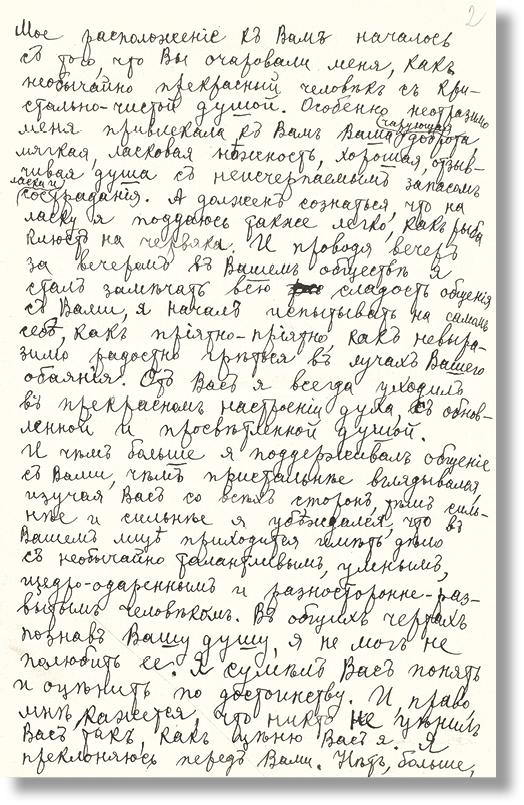 2
Мое расположеніе къ Вамъ началось
съ того, что Вы очаровали меня, какъ
необычайно прекрасный человѣкъ съ кри-
стально-чистой душой. Особенно неотразимо
меня привлекала къ Вамъ Ваша чарующая доброта,
мягкая, ласковая нѣжность, хорошая, отзыв-
чивая душа съ неисчерпаемымъ запасомъ
ласки и состраданія. А долженъ сознаться, что на
ласку я поддаюсь также легко, какъ рыба
клюетъ на червяка. И проводя вечеръ
за вечеромъ въ Вашемъ обществѣ я
сталъ замѣчать всю сладость общенія
съ Вами, я началъ испытывать на самомъ
себѣ, какъ пріятно-пріятно, какъ невыра-
зимо радостно грѣться въ лучахъ Вашего
обаянія. Отъ Васъ я всегда уходилъ
въ прекрасномъ настроеніи духа, съ обнов-
ленной и просвѣтленной душой.
И чѣмъ больше я поддерживалъ общеніе
съ Вами, чѣмъ пристальнѣе вглядывался,
изучая Васъ со всѣхъ сторонъ, тѣмъ силь-
нѣе и сильнѣе я убѣждался, что въ
Вашемъ лицѣ приходится имѣть дѣло
съ необычайно талантливымъ, умнымъ,
щедро-одареннымъ и разносторонне-раз-
витымъ человѣкомъ. Въ общихъ чертахъ
познавъ Вашу душу, я не могъ не
полюбить ее. Я сумѣлъ Васъ понять
и оцѣнить по достоинству. И право
мнѣ кажется, что никто не цѣнилъ
Васъ такъ, какъ цѣню Васъ я. Я
преклоняюсь передъ Вами. Нѣтъ, больше,